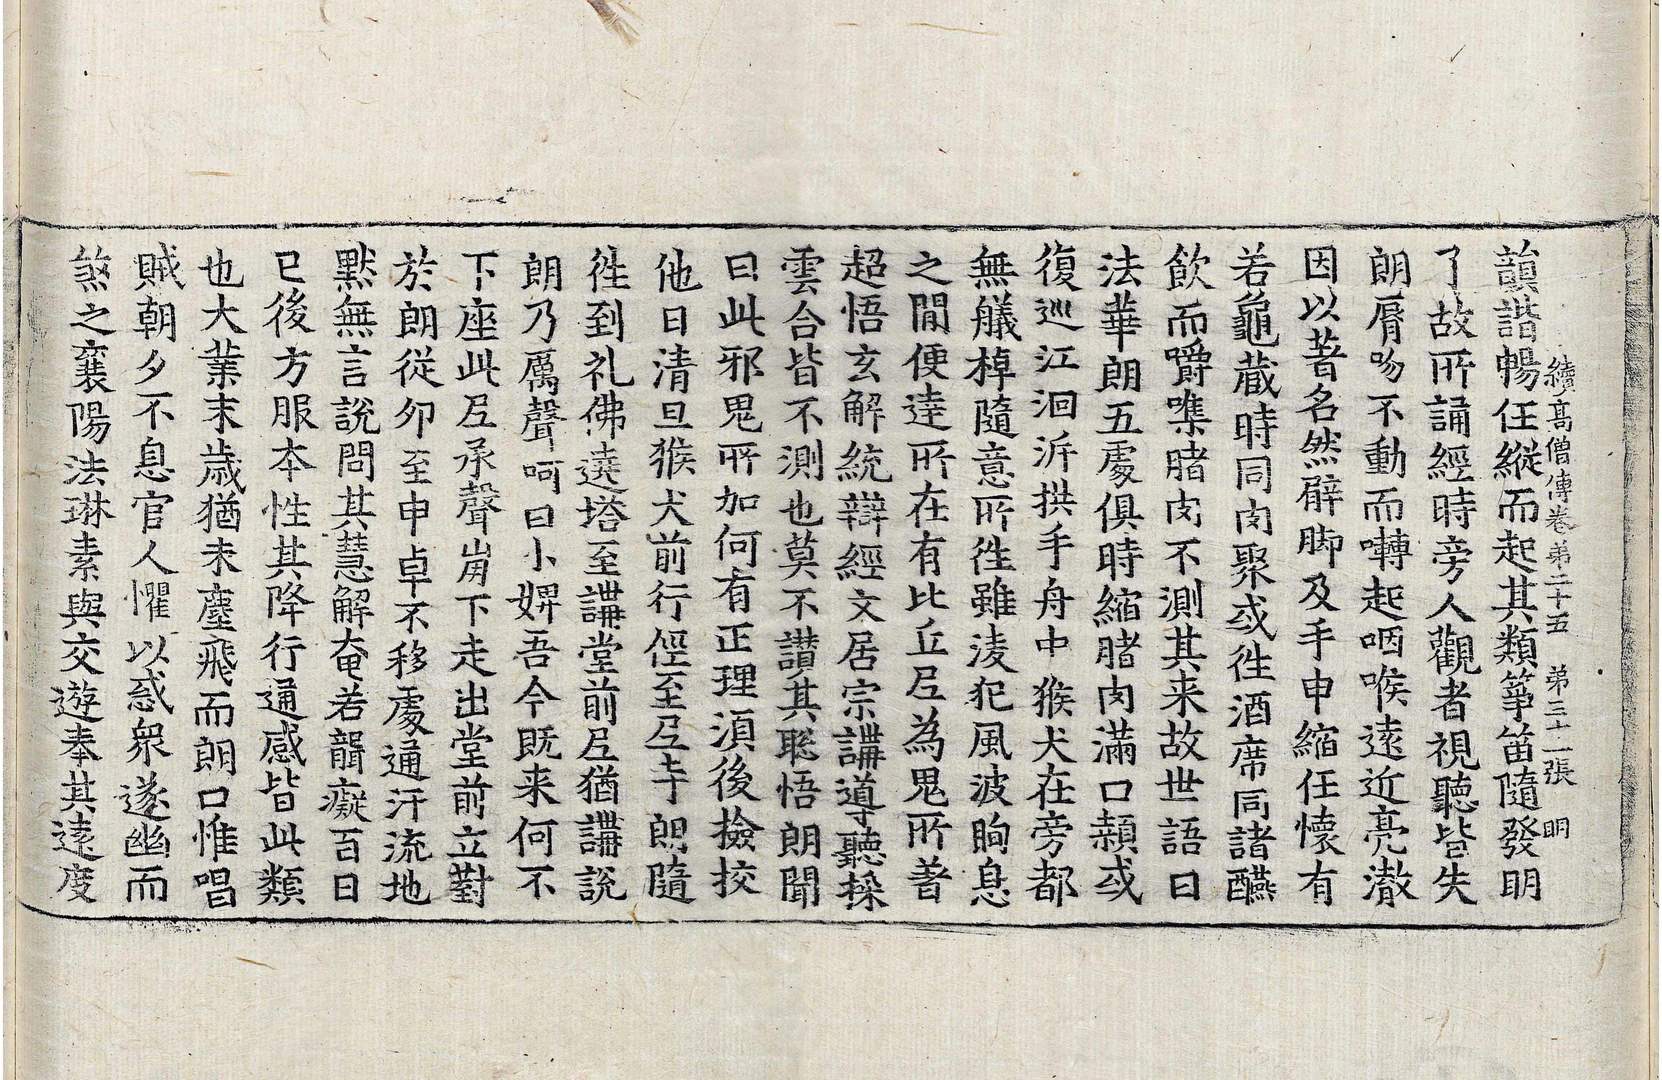 續高僧傳卷苐二十五 苐三十二張 明
韻諧暢任縱而起其類筝笛隨發明
了故所誦經時旁人觀者視聽皆失
朗脣吻不動而囀起咽喉遠近亮澈
因以著名然臂脚及手申縮任懷有
若龜藏時同肉聚或往酒席同諸醼
飲而嚼噍豬肉不測其来故世語曰
法華朗五處俱時縮豬肉滿口顙或
復巡江洄泝拱手舟中猴犬在旁都
無艤棹隨意所往雖淩犯風波眴息
之閒便逹所在有比丘𡰱為鬼所著
超悟玄解統辯經文居宗講導聽採
雲合皆不測也莫不讃其聡悟朗聞
曰此邪鬼所加何有正理湏後撿挍
他日清旦猴犬前行俓至𡰱寺朗隨
往到礼佛遶塔至講堂前𡰱猶講說
朗乃厲聲呵曰小婢吾今既来何不
下座此𡰱承聲崩下走出堂前立對
於朗從卯至申卓不移處通汗流地
默無言說問其慧解奄若聾癡百日
已後方服本性其降行通感皆此類
也大業末歲猶未塵飛而朗口惟唱
賊朝夕不息官人懼以惑衆遂幽而
煞之襄陽法琳素與交遊奉其遠度